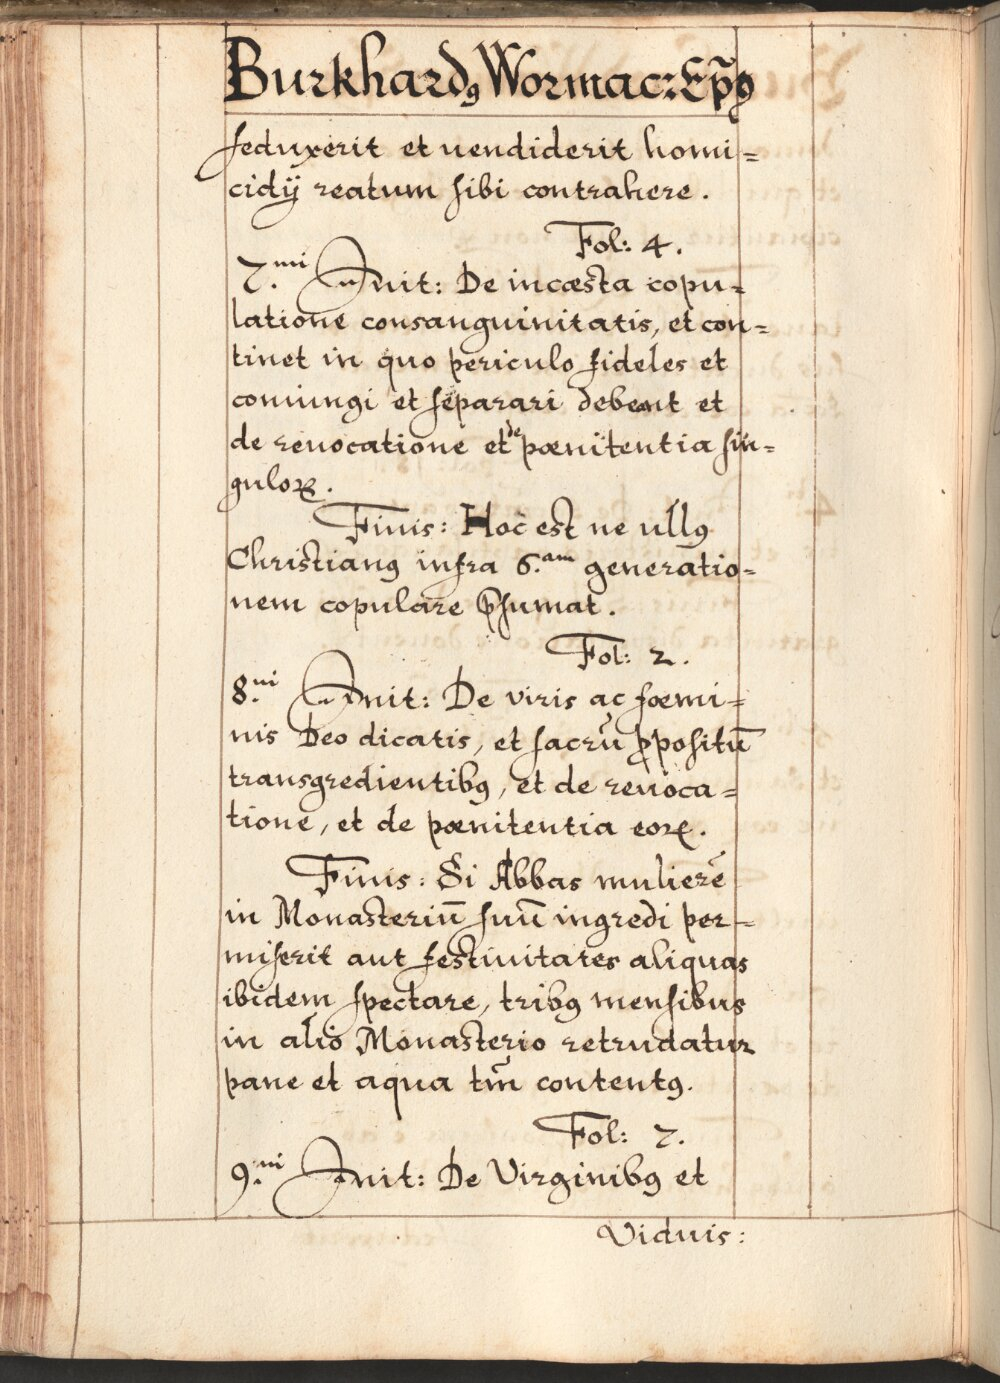 Burkhardꝰ Wormac: Ep̃ꝰ
seduxerit et uendiderit homi=
cidÿ reatum sibi contrahere.
Fol: 4.
7.mi Init: De incæsta copu=
latione consanguinitatis, et con=
tinet in quo periculo fideles et
coniungi et separari debeant et
de reuocatione et de pœnitentia sin=
guloꝝ.
Finis: Hoc est ne ullꝰ
Christianꝰ infra 6.am generatio=
nem copulare p̃sumat.
Fol: 2.
8.ui Init: De viris ac fœmi=
nis Deo dicatis, et sacrū ꝓpositū
transgredientibꝰ, et de reuoca=
tione, et de pœnitentia eoꝝ.
Finis: Si Abbas mulierē
in Monasteriū suū ingredi per=
miserit aut festiuitates aliquas
ibidem spectare, tribꝰ mensibus
in alio Monasterio retrudatur
pane et aqua tm̄ contentꝰ.
Fol: 7.
9.ni Init: De Virginibꝰ et
Viduis: